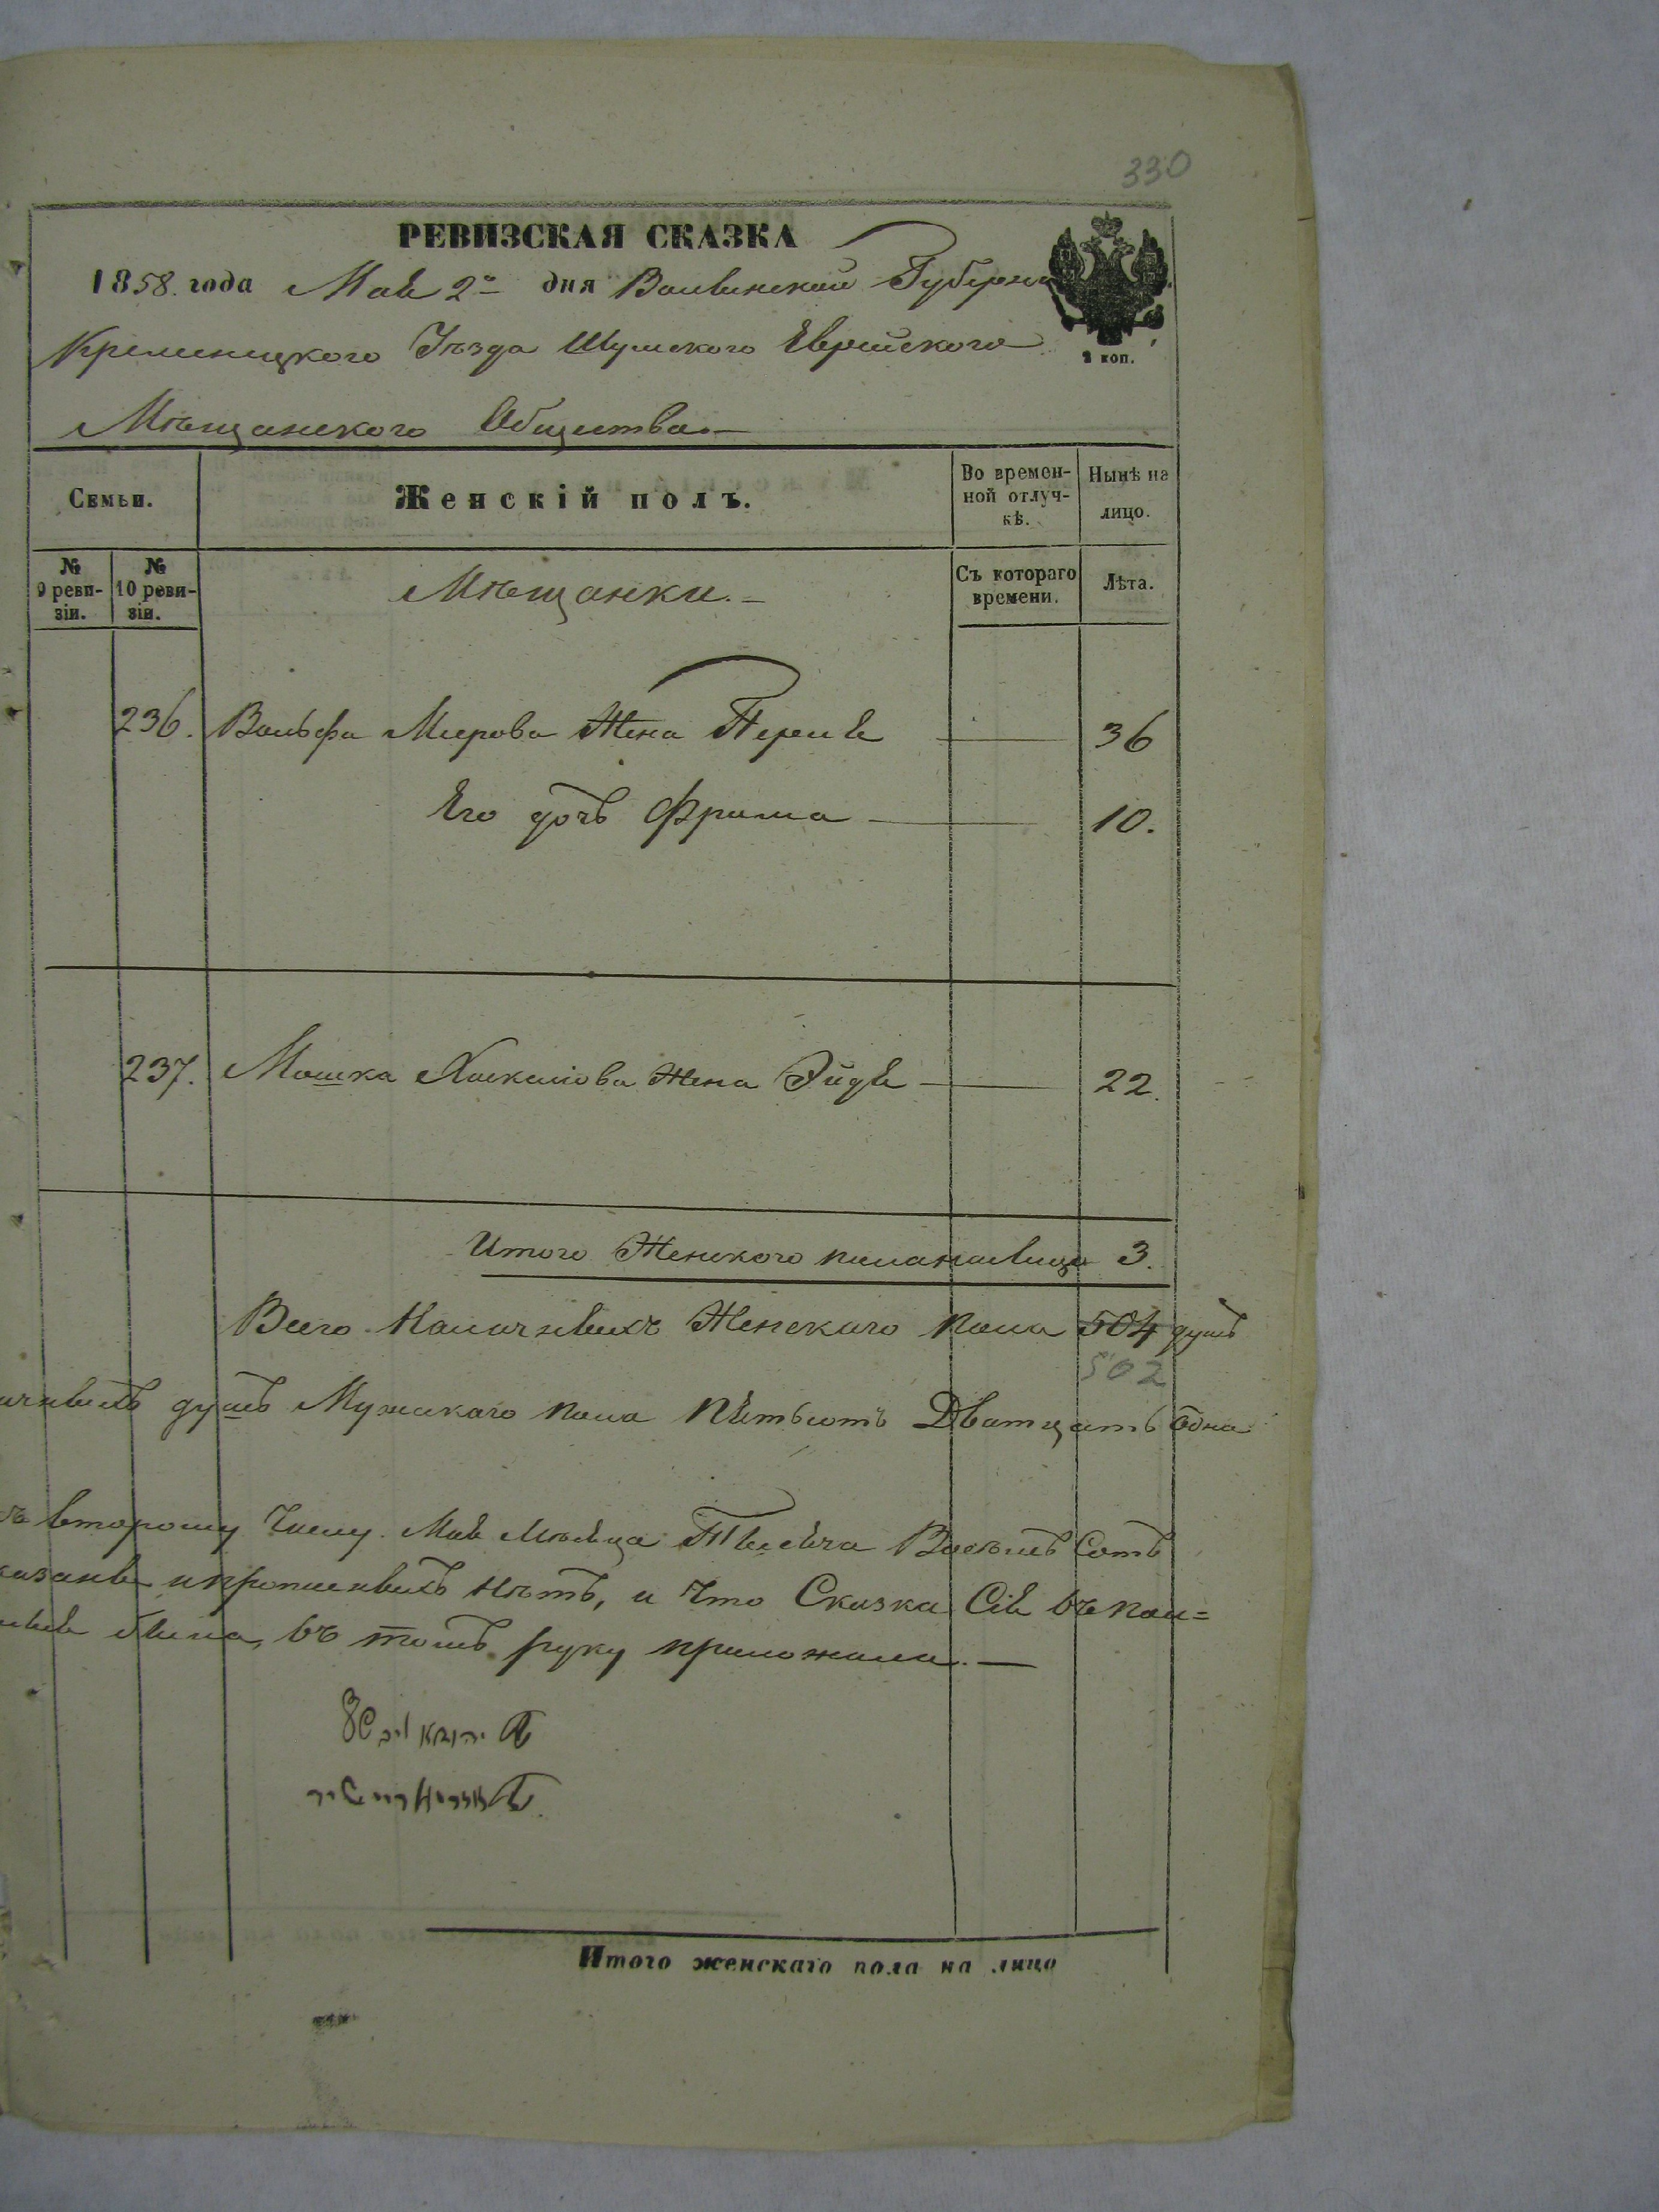 330
РЕВИЗСКАЯ СКАЗКА
1858. года Мая 2го дня Волынской Губерніи
Кременецкого Уѣзда Шумского Еврейского
2 коп.
Мѣщанского Общества.
Семьи. Женскій полъ. Во временной отлучкѣ. Нынѣ на лицо.
№ 9 ревизіи. № 10 ревизіи. Мѣщанки. Съ котораго времени. Лѣта.
236. Вольфа Меерова Жена Перля 36
Его дочь Фрима 10.
237. Мошка Хаскелова Жена Эйдя 22.
Итого Женского пола на лицо 3.
Всего Наличныхъ Женскаго пола 504 душъ
502
душъ Мужскаго пола Пятьсотъ Дватцать Одна
второму Числу Мая Мѣсяца Тысяча Восемь Сотъ
и прописныхъ нѣтъ, и что Сказка Сія въ пол=
была, въ томъ руку приложили.
Итого женскаго пола на лицо